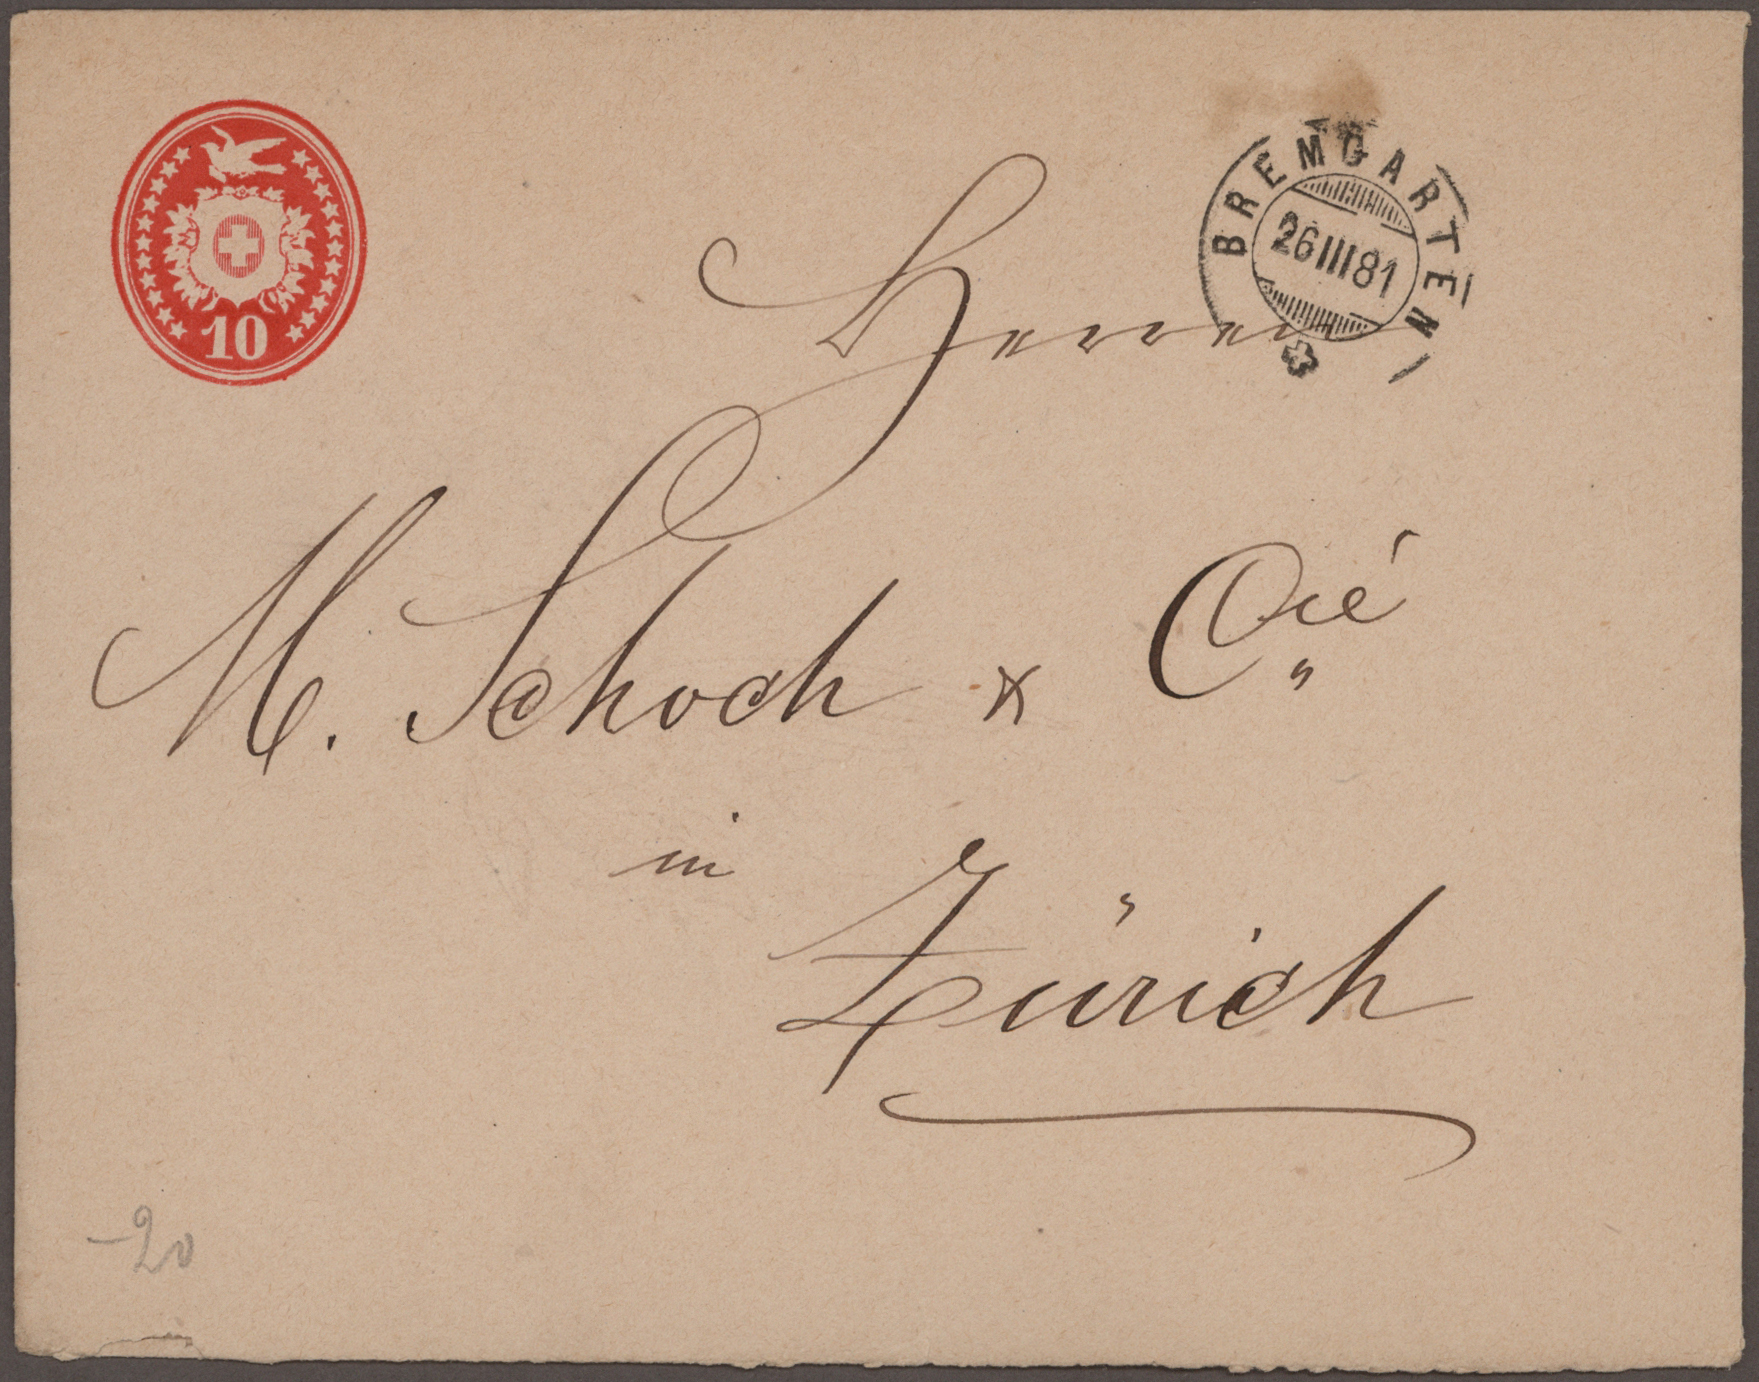 10
BREMGARTEN
26 III 81
Herren
M. Schoch & Cié
in
Zürich
-20